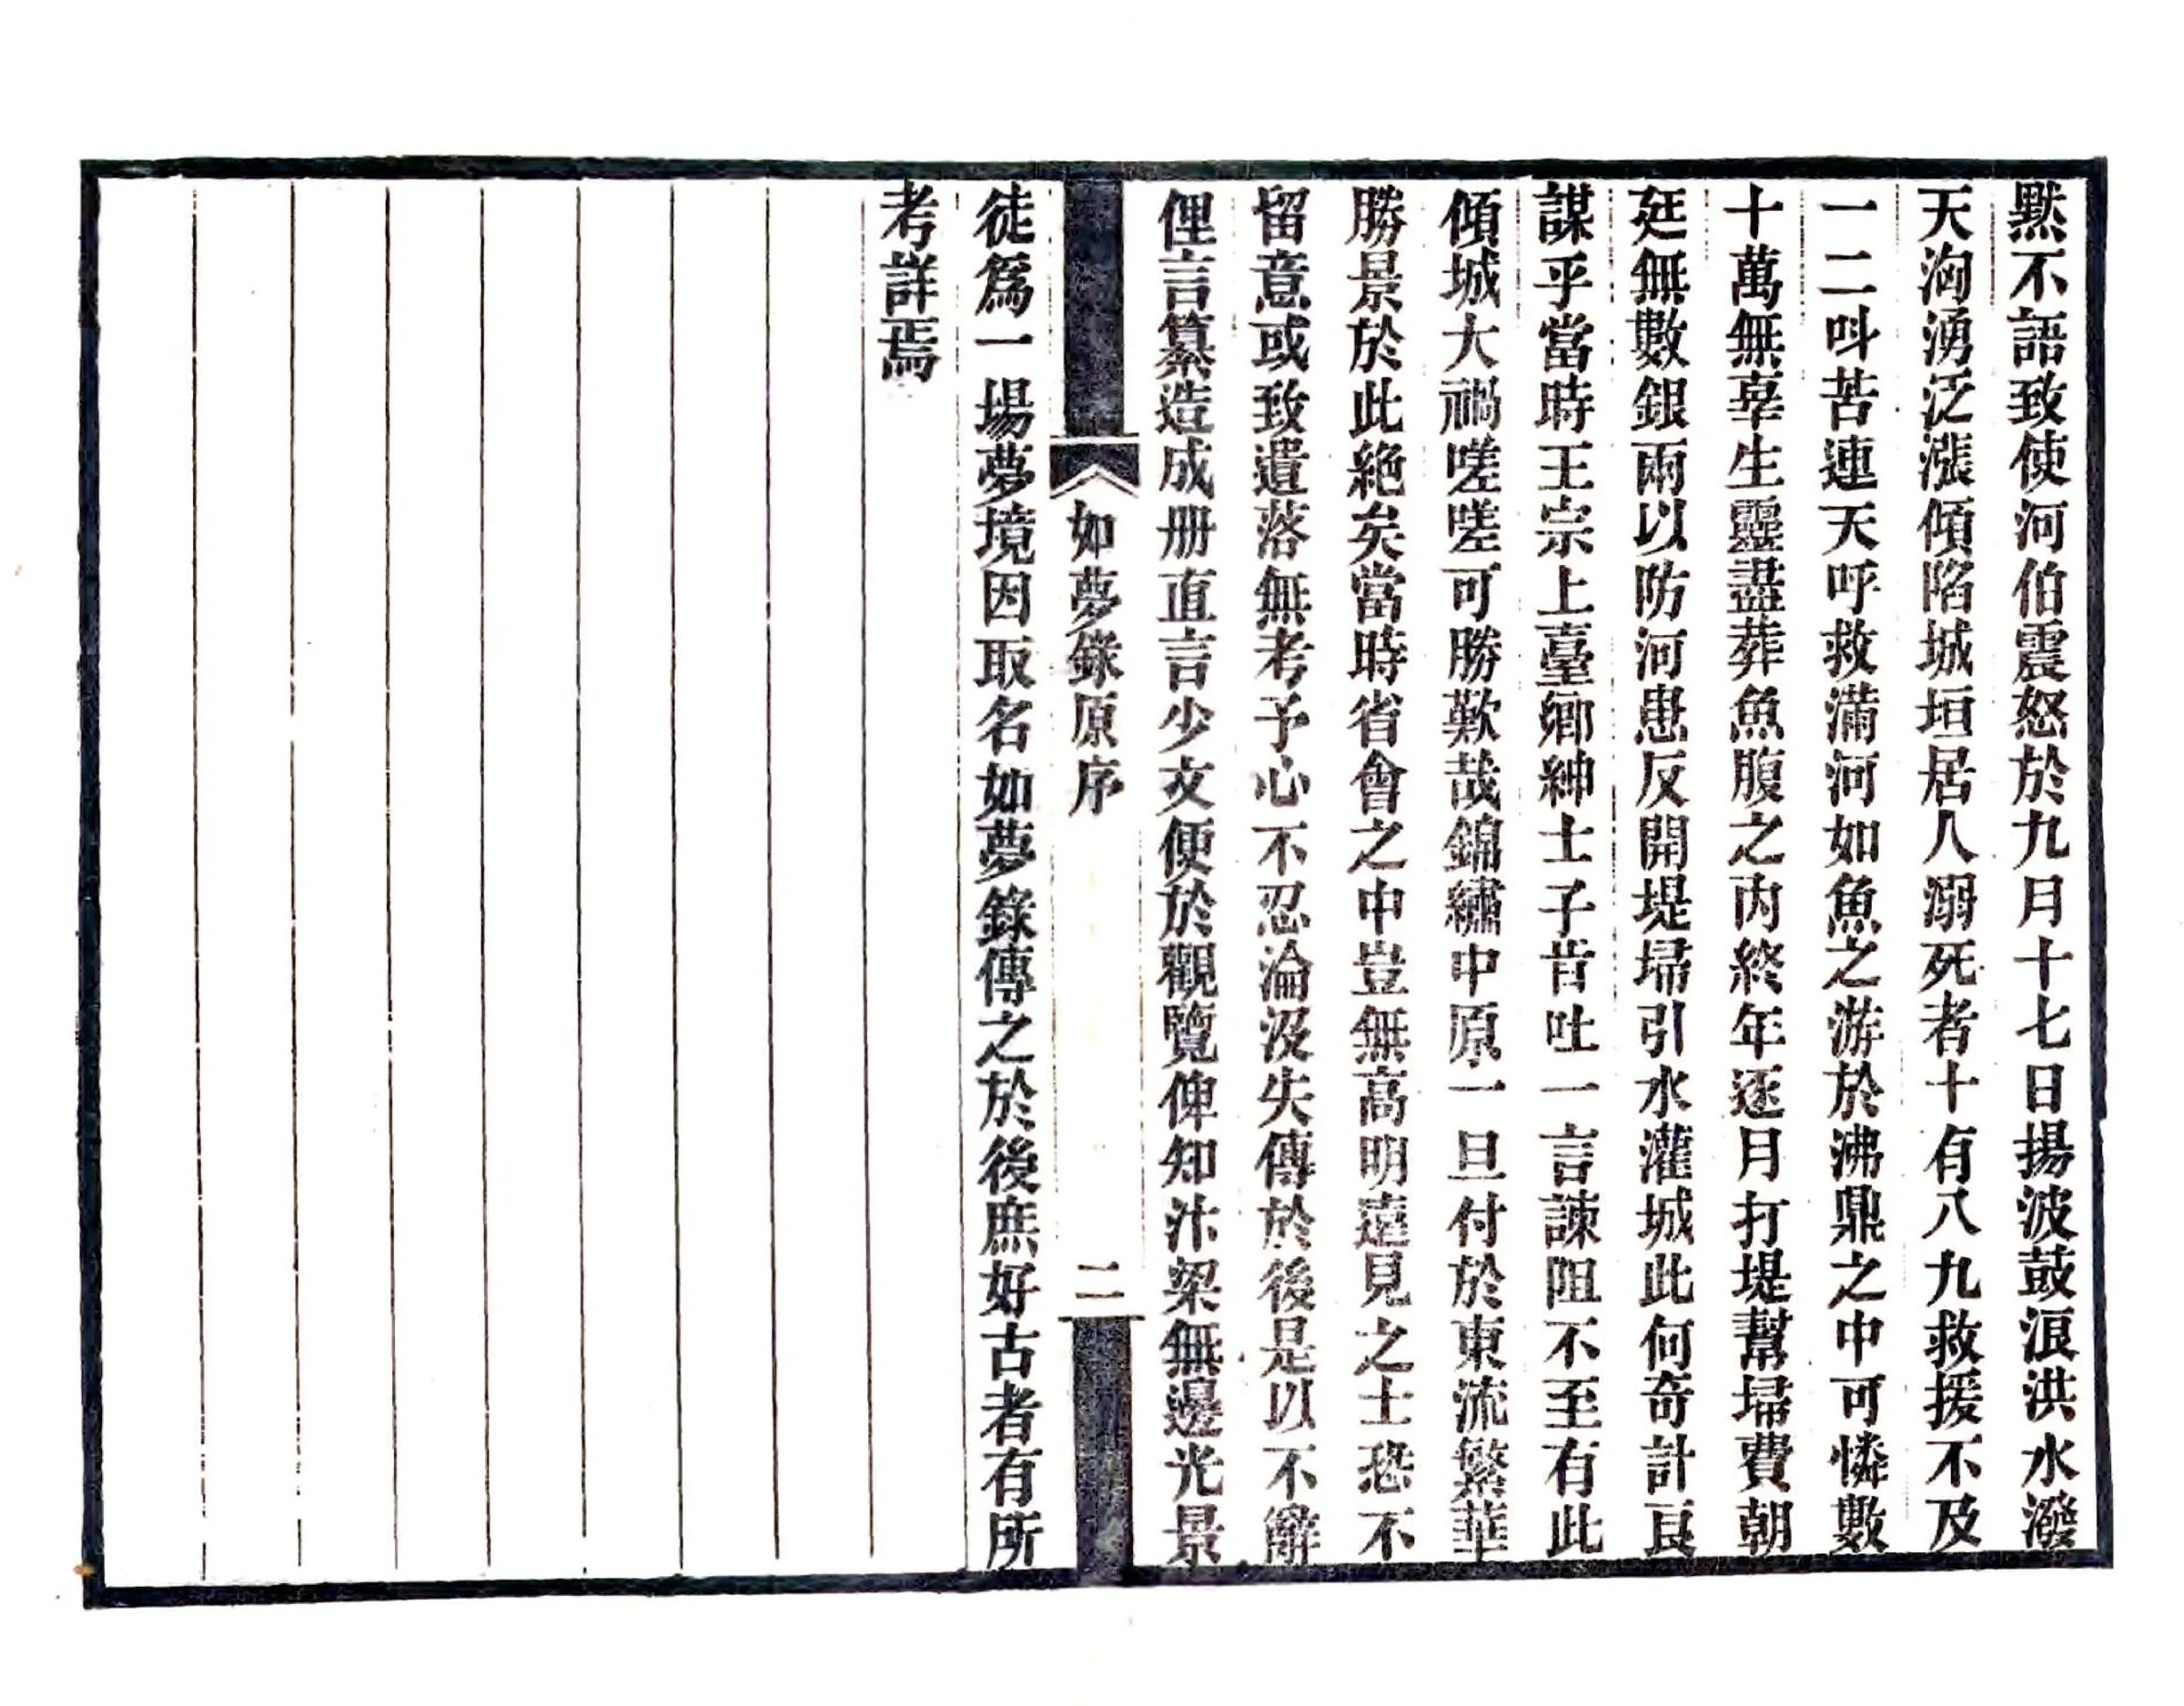 默不語致使河伯震怒於九月十七日揚波鼓浪洪水潑
天洶湧泛漲傾陷城垣居人溺死者十有八九救援不及
一二呌苦連天呼救滿河如魚之游於沸鼎之中可憐數
十萬無辜生靈盡葬魚腹之內終年逐月打堤幫埽費朝
廷無數銀兩以防河患反開堤埽引水灌城此何奇計良
謀乎當時王宗上臺鄉紳士子肯吐一言諫阻不至有此
傾城大禍嗟嗟可勝歎哉錦繡中原一旦付於東流繁華
勝景於此絕矣當時省會之中豈無高明遠見之士恐不
留意或致遺落無考予心不忍淪沒失傳於後是以不辭
俚言纂造成册直言少文便於觀覽俾知汴梁無邊光景
如夢錄原序
二
徒爲一場夢境因取名如夢錄傳之於後庶好古者有所
考詳焉